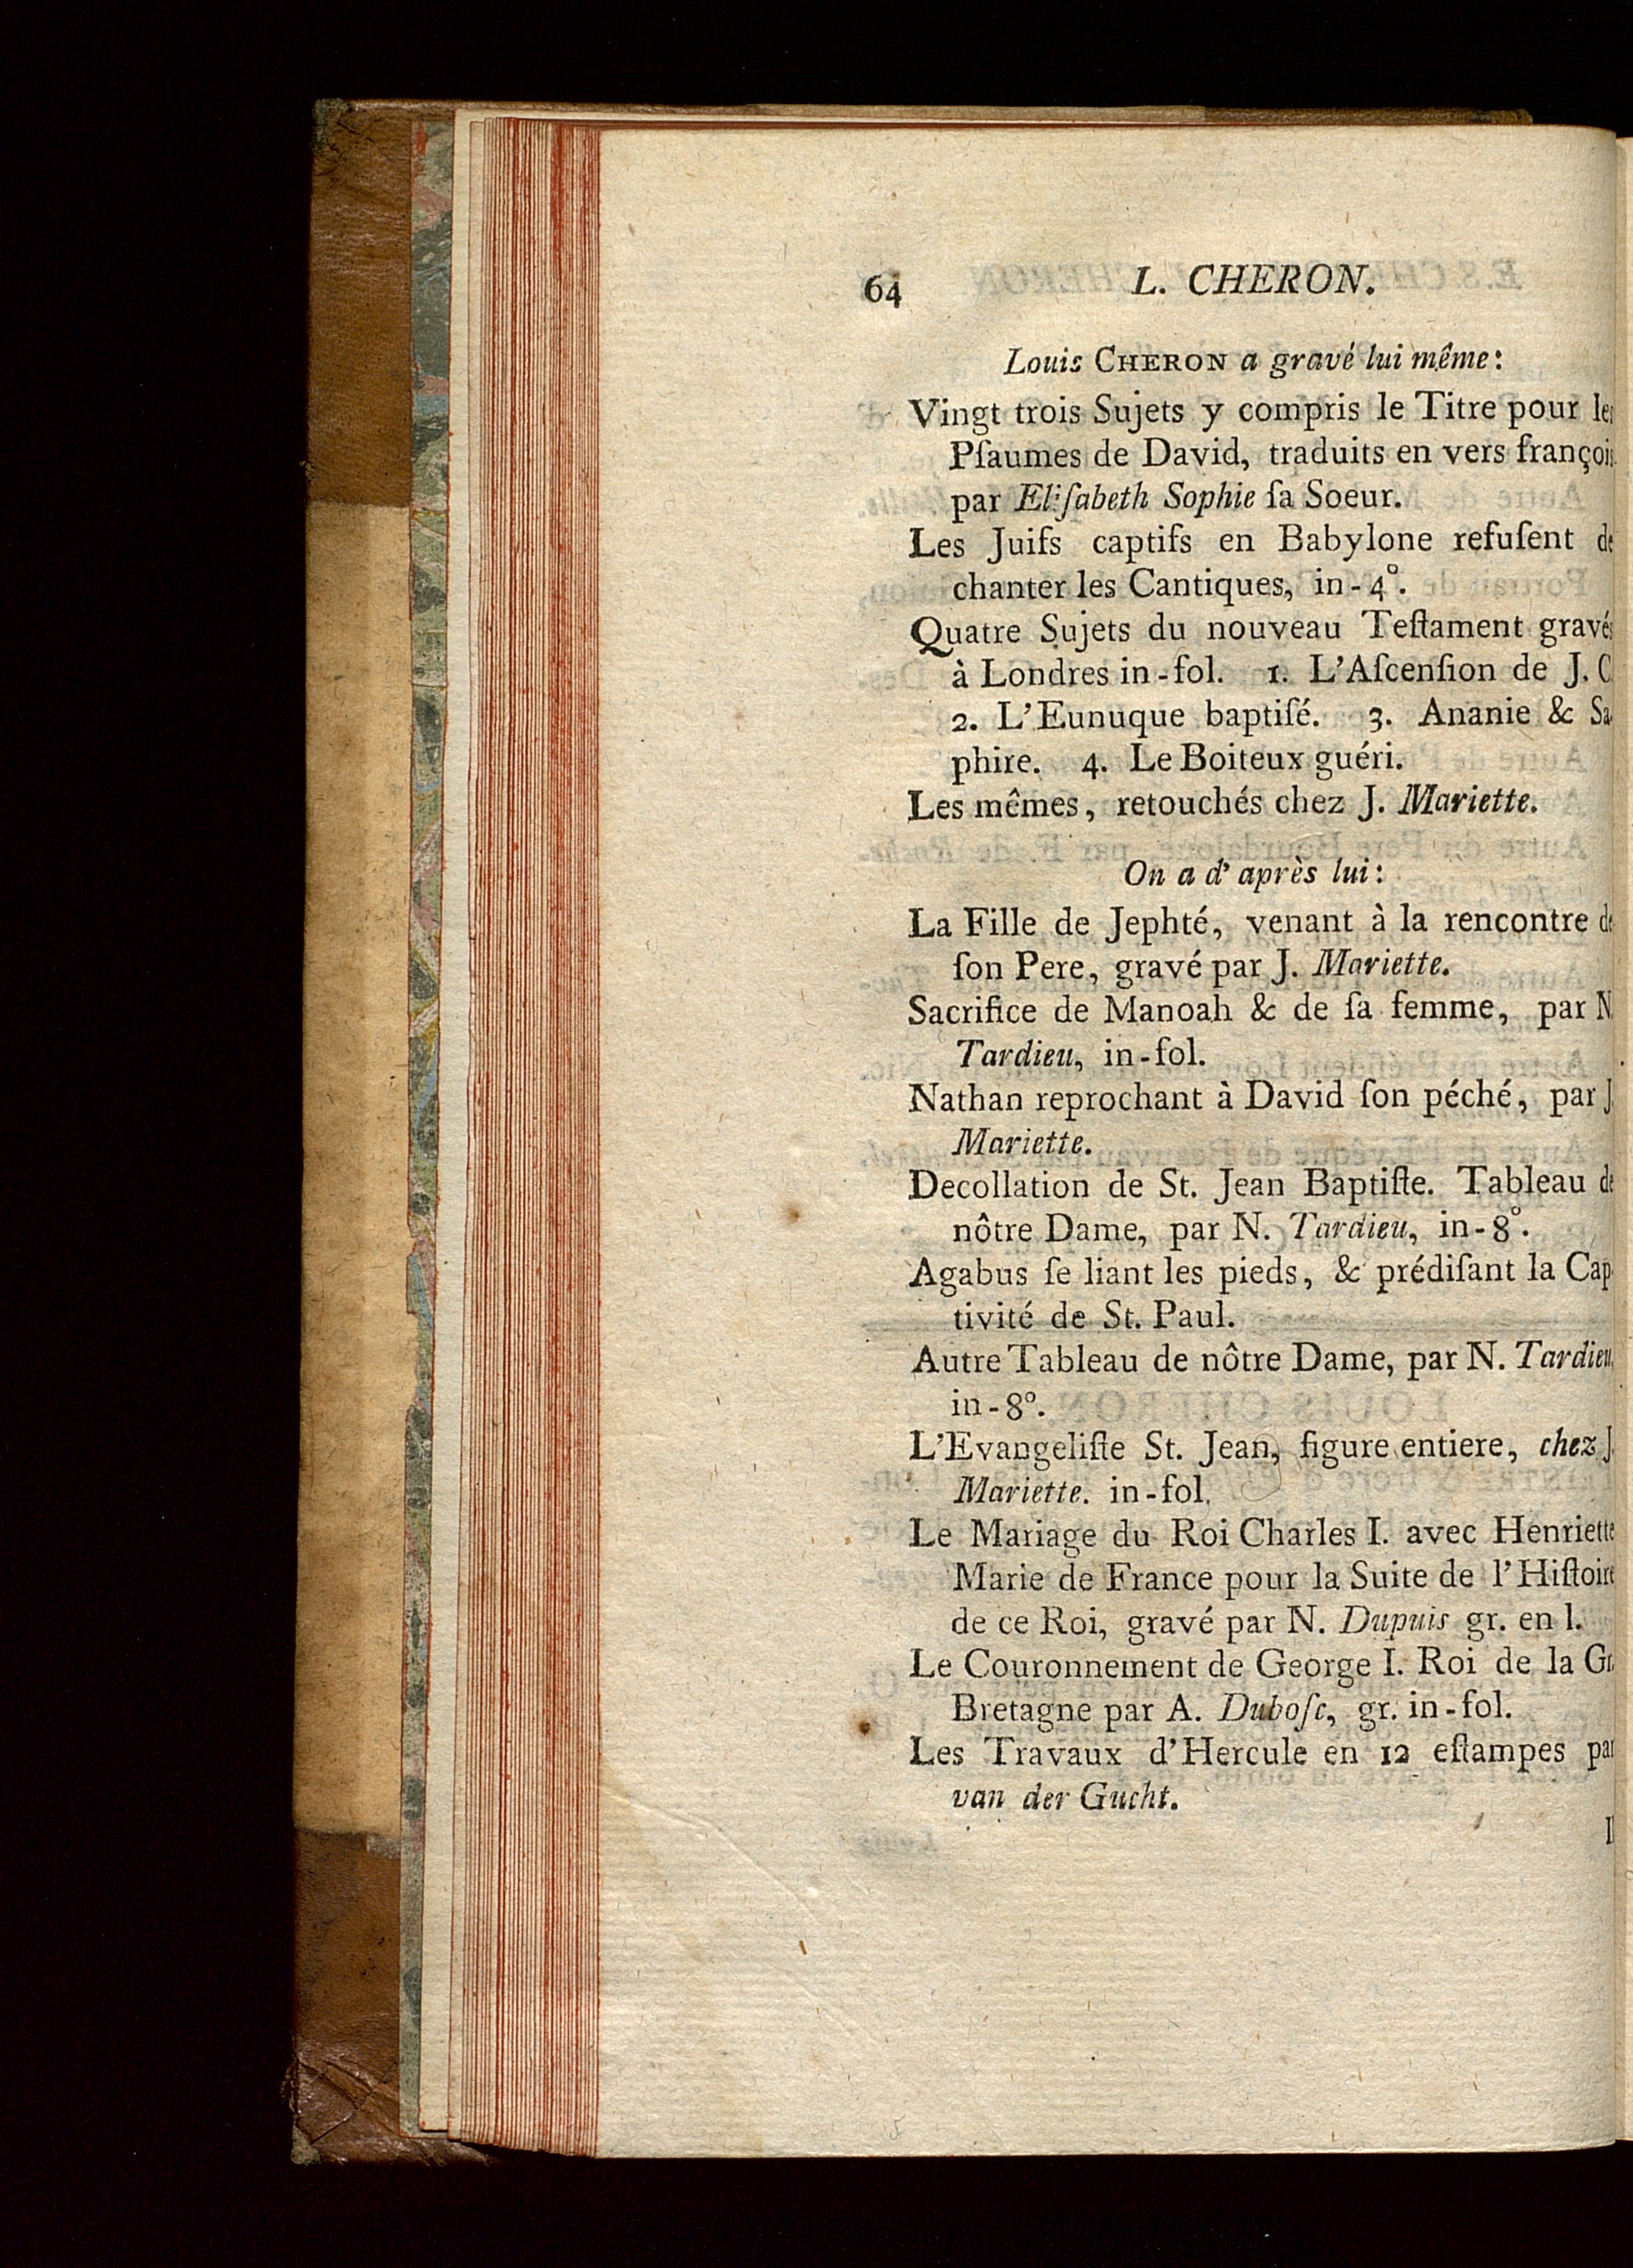 64 L. CHERON.
Louis CHERON a gravé lui même:
Vingt trois Sujets y compris le Titre pour les
Pſaumes de David, traduits en vers françois
par Eliſabeth Sophie ſa Soeur.
Les Juifs captifs en Babylone refuſent de
chanter les Cantiques, in-4°.
Quatre Sujets du nouveau Teſtament gravés
à Londres in-fol. 1. L'Aſcenſion de J. C
2. L'Eunuque baptiſé. 3. Ananie & Sa-
phire. 4. Le Boiteux guéri.
Les mêmes, retouchés chez J. Mariette.
On a d'après lui:
La Fille de Jephté, venant à la rencontre de
ſon Pere, gravé par J. Mariette.
Sacrifice de Manoah & de ſa femme, par N.
Tardieu, in-fol.
Nathan reprochant à David ſon péché, par J.
Mariette.
Decollation de St. Jean Baptiſte. Tableau de
nôtre Dame, par N. Tardieu, in-8°.
Agabus ſe liant les pieds, & prédiſant la Cap-
tivité de St. Paul.
Autre Tableau de nôtre Dame, par N. Tardieu,
in-8°.
L'Evangeliſte St. Jean, figure entiere, chez J.
Mariette. in-fol.
Le Mariage du Roi Charles I. avec Henriette
Marie de France pour la Suite de l'Hiſtoire
de ce Roi, gravé par N. Dupuis gr. en l.
Le Couronnement de George I. Roi de la Gr.
Bretagne par A. Duboſc, gr. in-fol.
Les Travaux d'Hercule en 12 eſtampes par
van der Gucht.